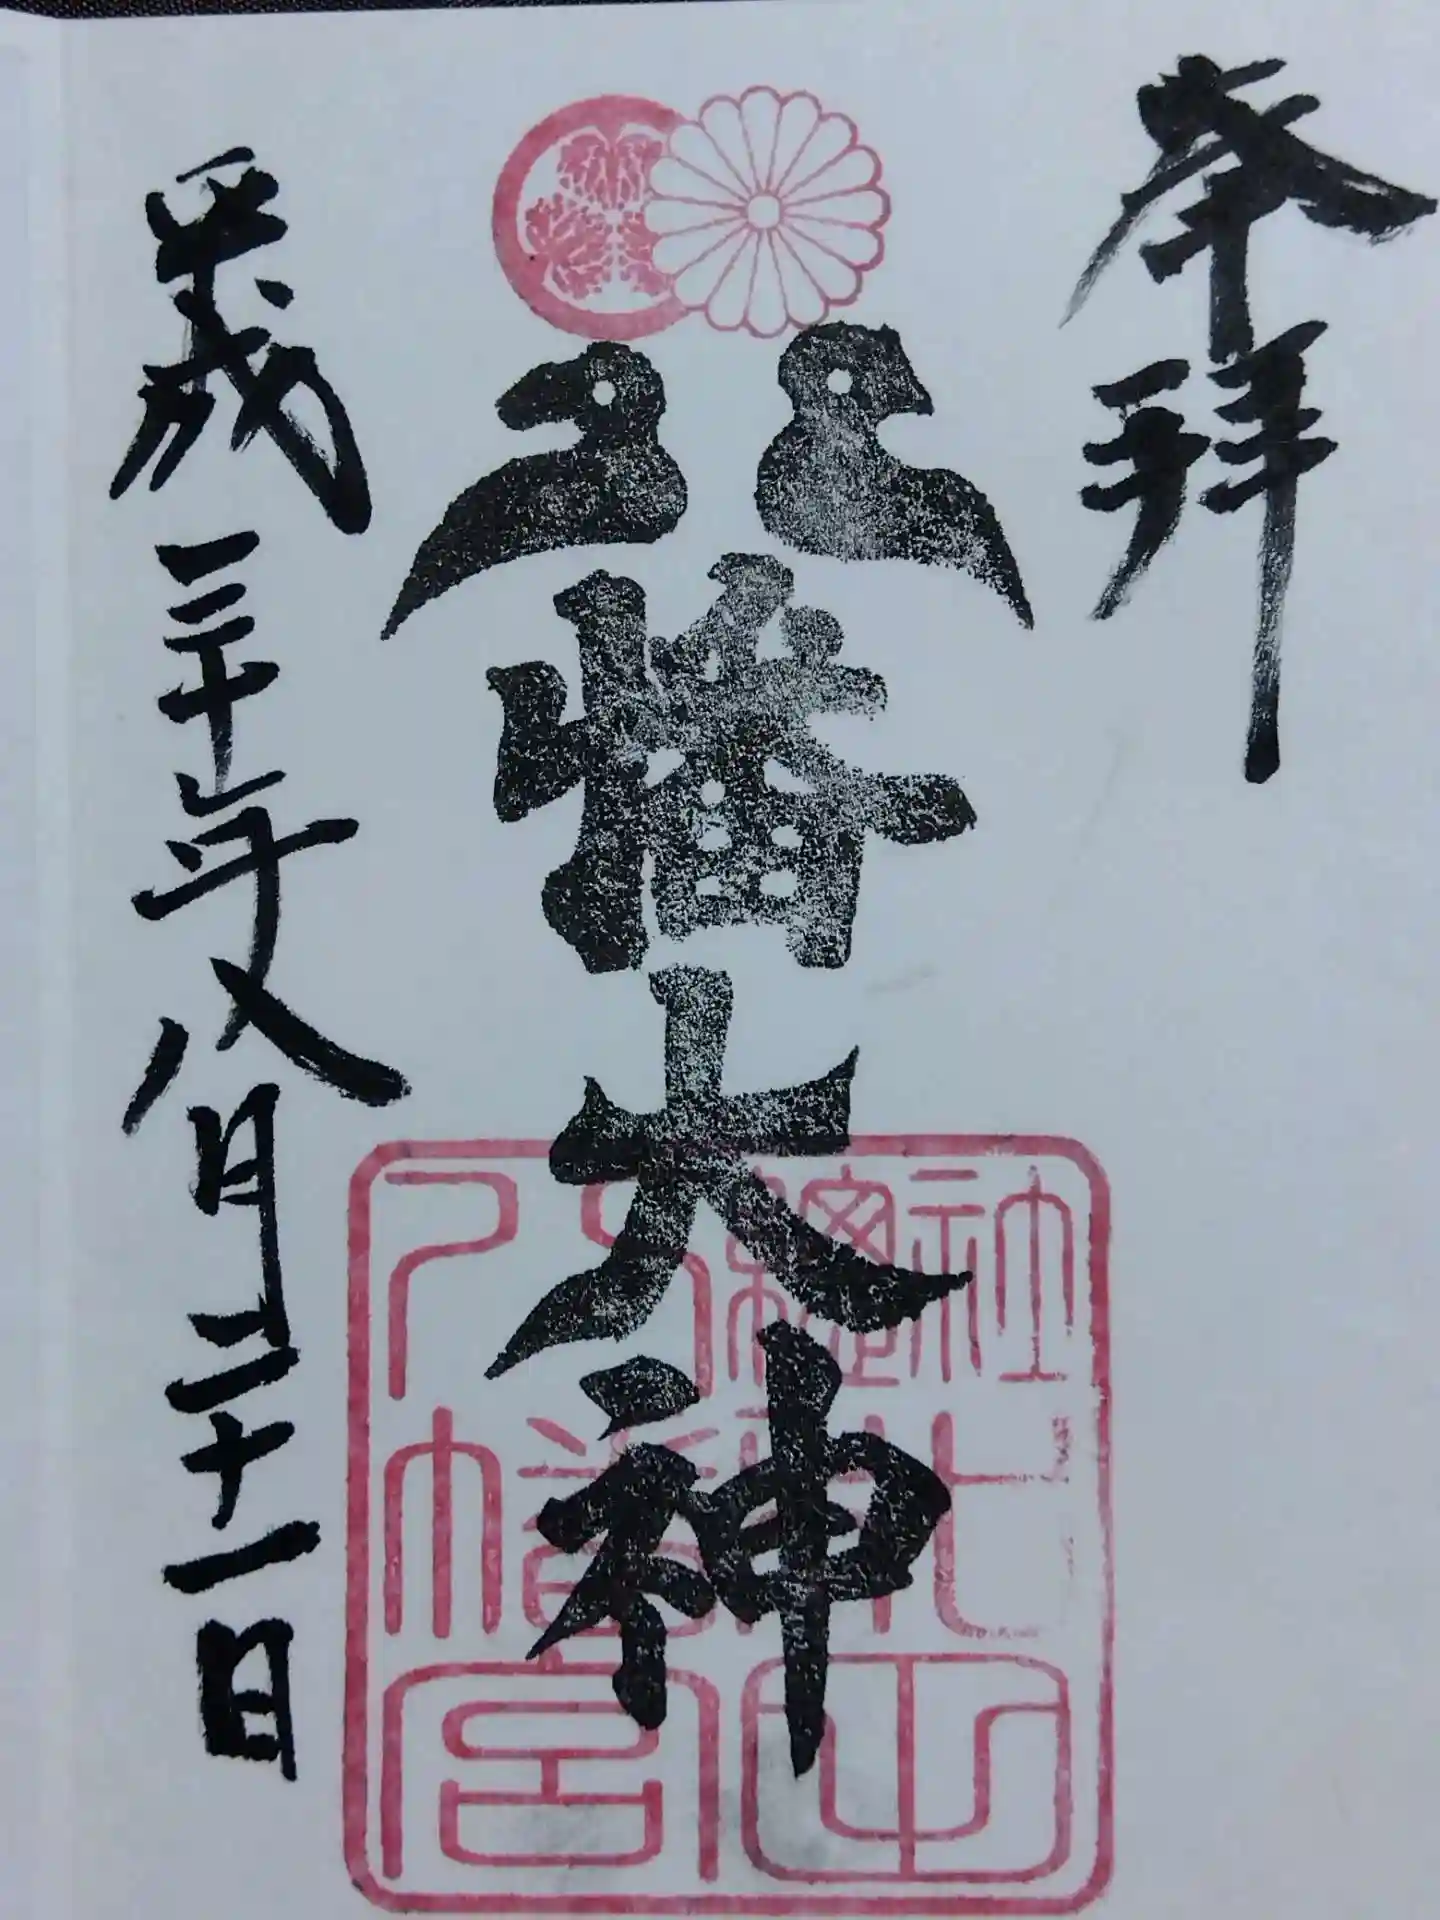 奉拝
八幡大神
八幡宮
平成三十年八月二十一日